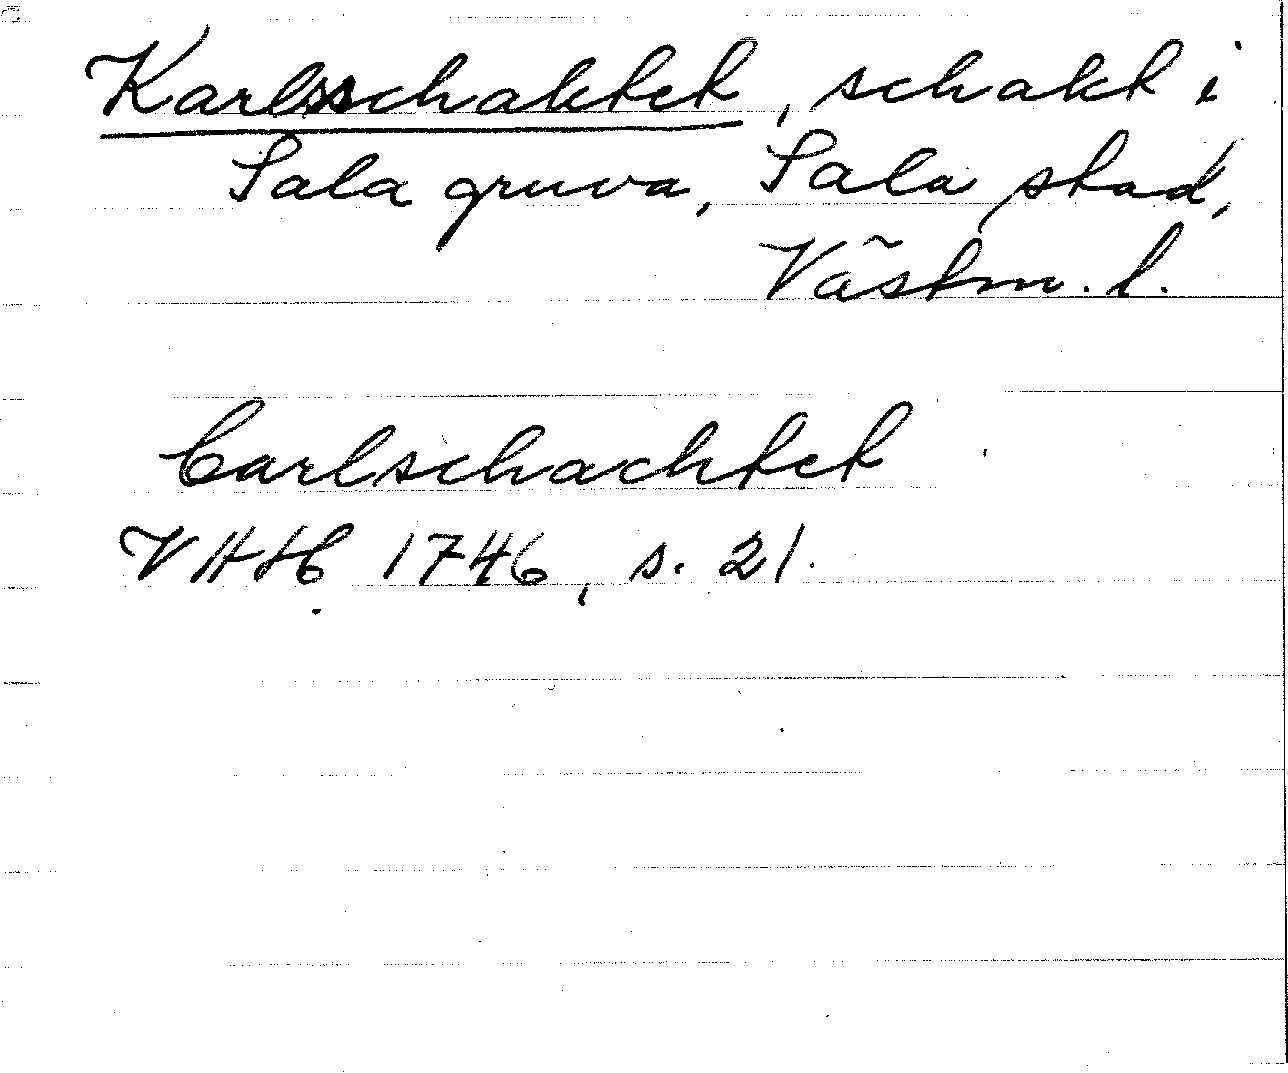 Karlsschaktet, schakt i
Sala gruva, Sala stad,
Västm. l.
Carlschachtet
VHH 1746, s. 21.